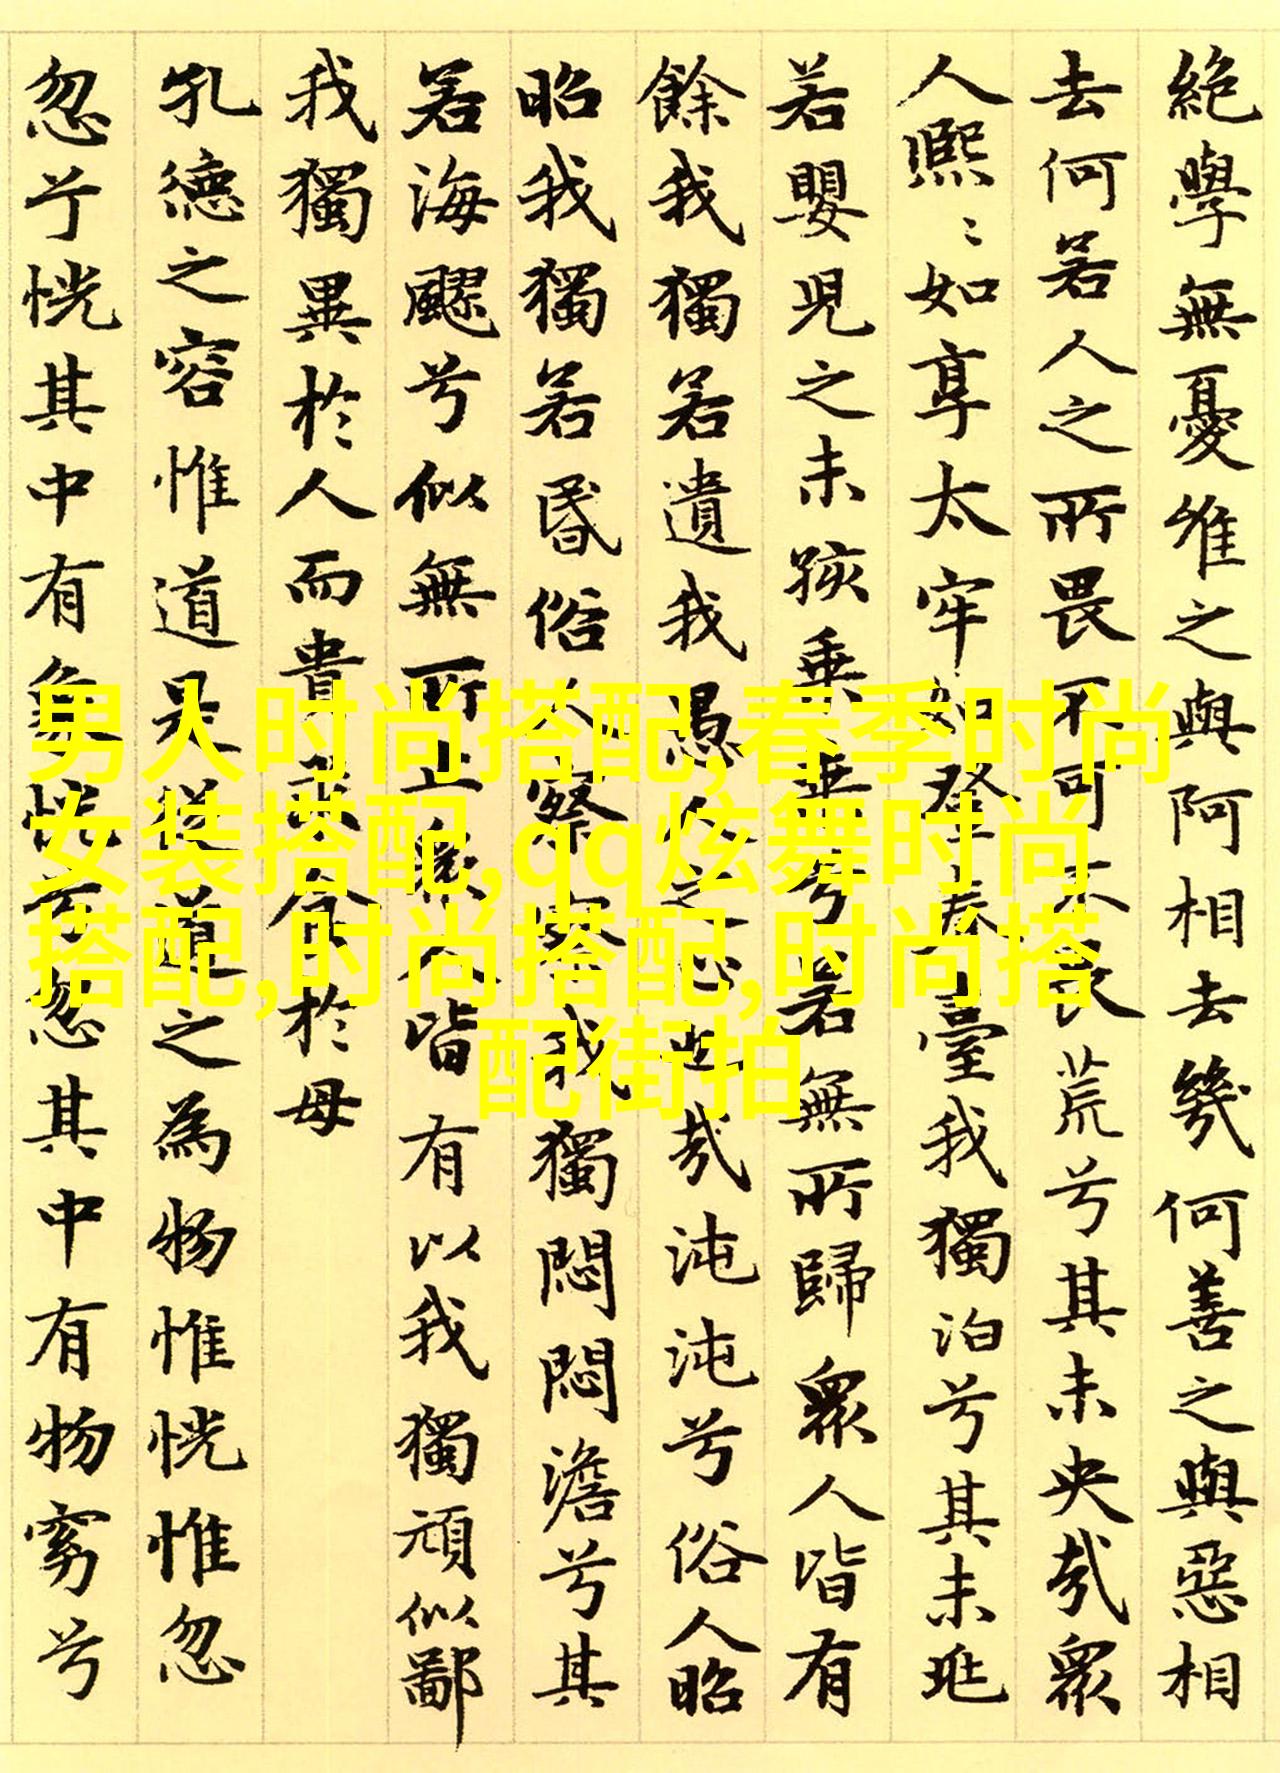 絶學無憂唯之與阿相去幾何善之與惡相
去何若人之所畏不可不畏荒兮其未央哉衆
人熙〻如享太牢如登春臺我獨泊兮其未兆
若嬰兒之未孩乗乗兮若無所歸衆人皆有
餘我獨若遺我愚人之心也哉沌沌兮俗人昭
昭我獨若昏俗人察察我獨悶悶澹兮其
若海飂兮似無所止衆人皆有以我獨頑似鄙
我獨異於人而貴求食於母
孔德之容惟道是從道之為物惟恍惟忽
忽兮恍其中有象恍兮忽其中有物窈兮
男人时尚搭配,春季时尚
女装搭配,qq炫舞时尚
搭配,时尚搭配,时尚搭
配街拍